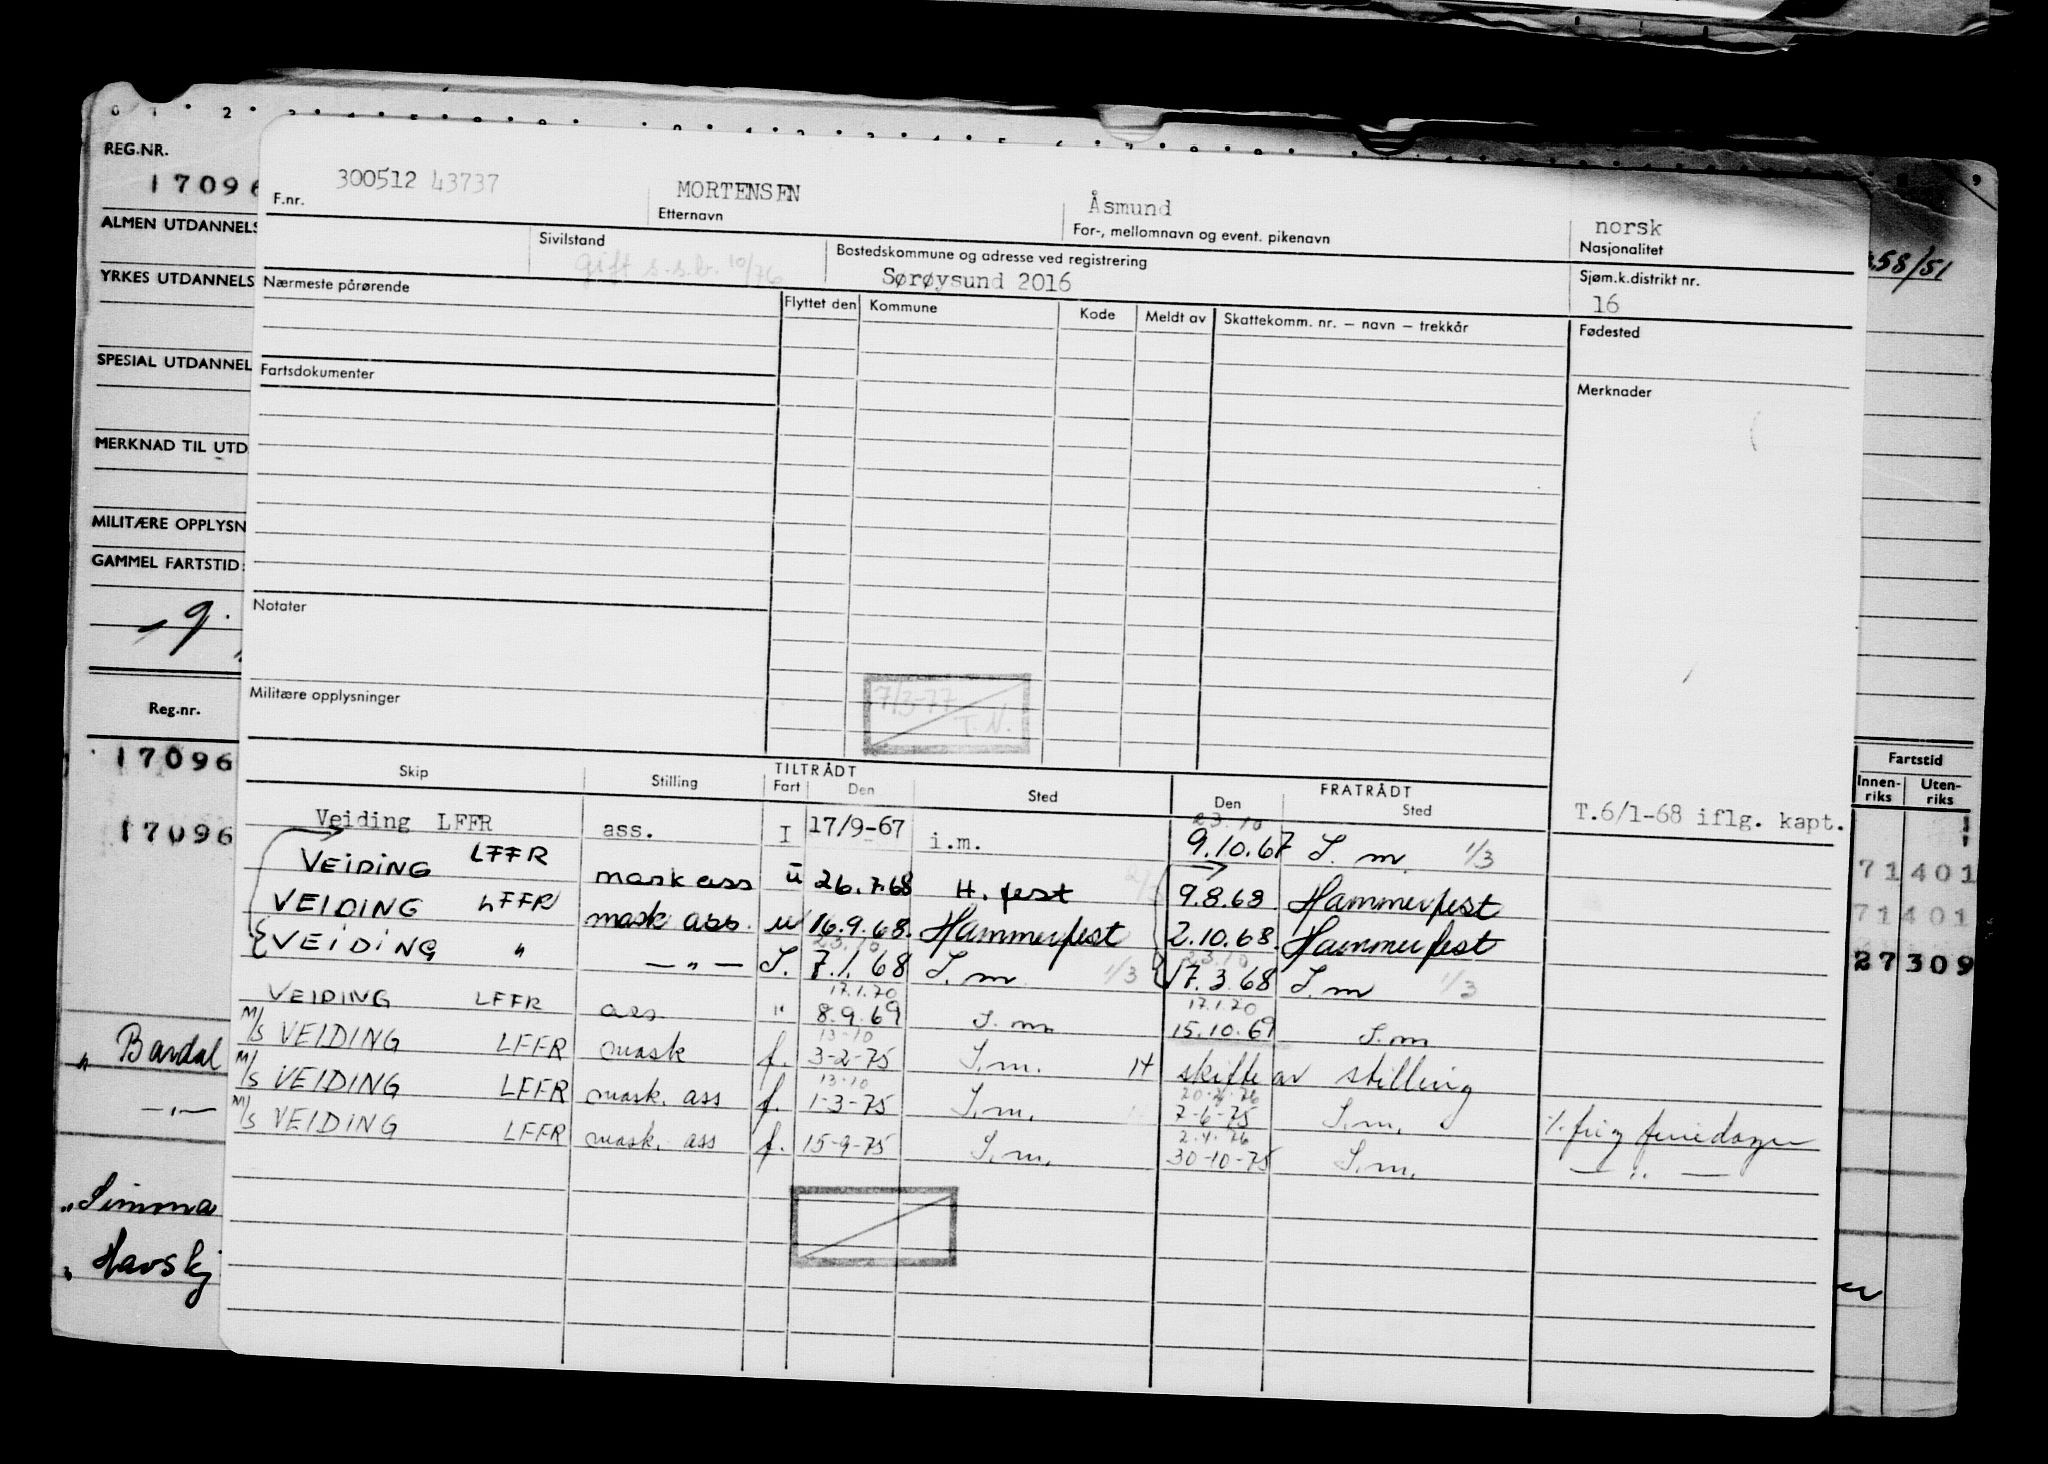 REG.NR.
17096
ALMEN UTDANNELS
YRKES UTDANNELS
SPESIAL UTDANNEL
MERKNAD TIL UTD
MILITÆRE OPPLYSN
GAMMEL FARTSTID:
Reg.nr.
17096
17096
" Bardal
— " —
" Simma
" Havskj
58/51
300512 43737 MORTENSEN Åsmund norsk
F.nr. Etternavn For-, mellomnavn og event. pikenavn Nasjonalitet
Sivilstand Bostedskommune og adresse ved registrering Sjøm.k.distrikt nr.
gift s.s.b. 10/76 Sørøysund 2016 16
Nærmeste pårørende Flyttet den Kommune Kode Meldt av Skattekomm. nr. – navn – trekkår Fødested
Fartsdokumenter Merknader
Notater
Militære opplysninger 7/3-77 T.N.
Skip Stilling TILTRÅDT FRATRÅDT
Fart Den Sted Den Sted
Veiding LFFR ass. I 17/9-67 i.m. 23.10 9.10.67 S. m. 1/3 T.6/1-68 iflg. kapt.
VEIDING LFFR mask ass u 26.7.68 H. fest 9.8.68 Hammerfest
VEIDING LFFR mask ass. u 16.9.68. Hammerfest 2.10.68. Hammerfest
VEIDING " — " — S. 23.10 7.1.68 S. m 1/3 23.10 17.3.68 S. m 1/3
VEIDING LFFR ass " 17.1.70 8.9.69 S. m 17.1.70 15.10.69 S. m
M/S VEIDING LFFR mask f. 13-10 3-2-75 S.m. H skifte av stilling
M/S VEIDING LFFR mask. ass f. 13.10 1-3-75 S.m. 7-6-75 S.m. %. frig feriedager
M/S VEIDING LFFR mask. ass f. 15-9-75 S.m. 2.4.76 30-10-75 S.m. — " —
Fartstid
Innen-riks Uten-riks
71 401
71 401
27 309